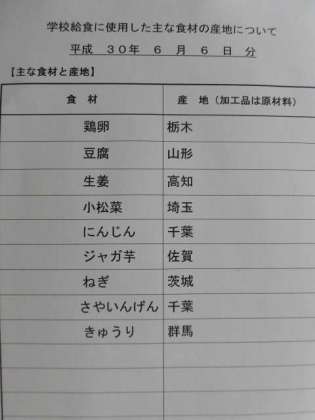 学校給食に使用した主な食材の産地について
平成 30年 6月 6日分
【主な食材と産地】
食材 産地（加工品は原材料）
鶏卵 栃木
豆腐 山形
生姜 高知
小松菜 埼玉
にんじん 千葉
ジャガ芋 佐賀
ねぎ 茨城
さやいんげん 千葉
きゅうり 群馬